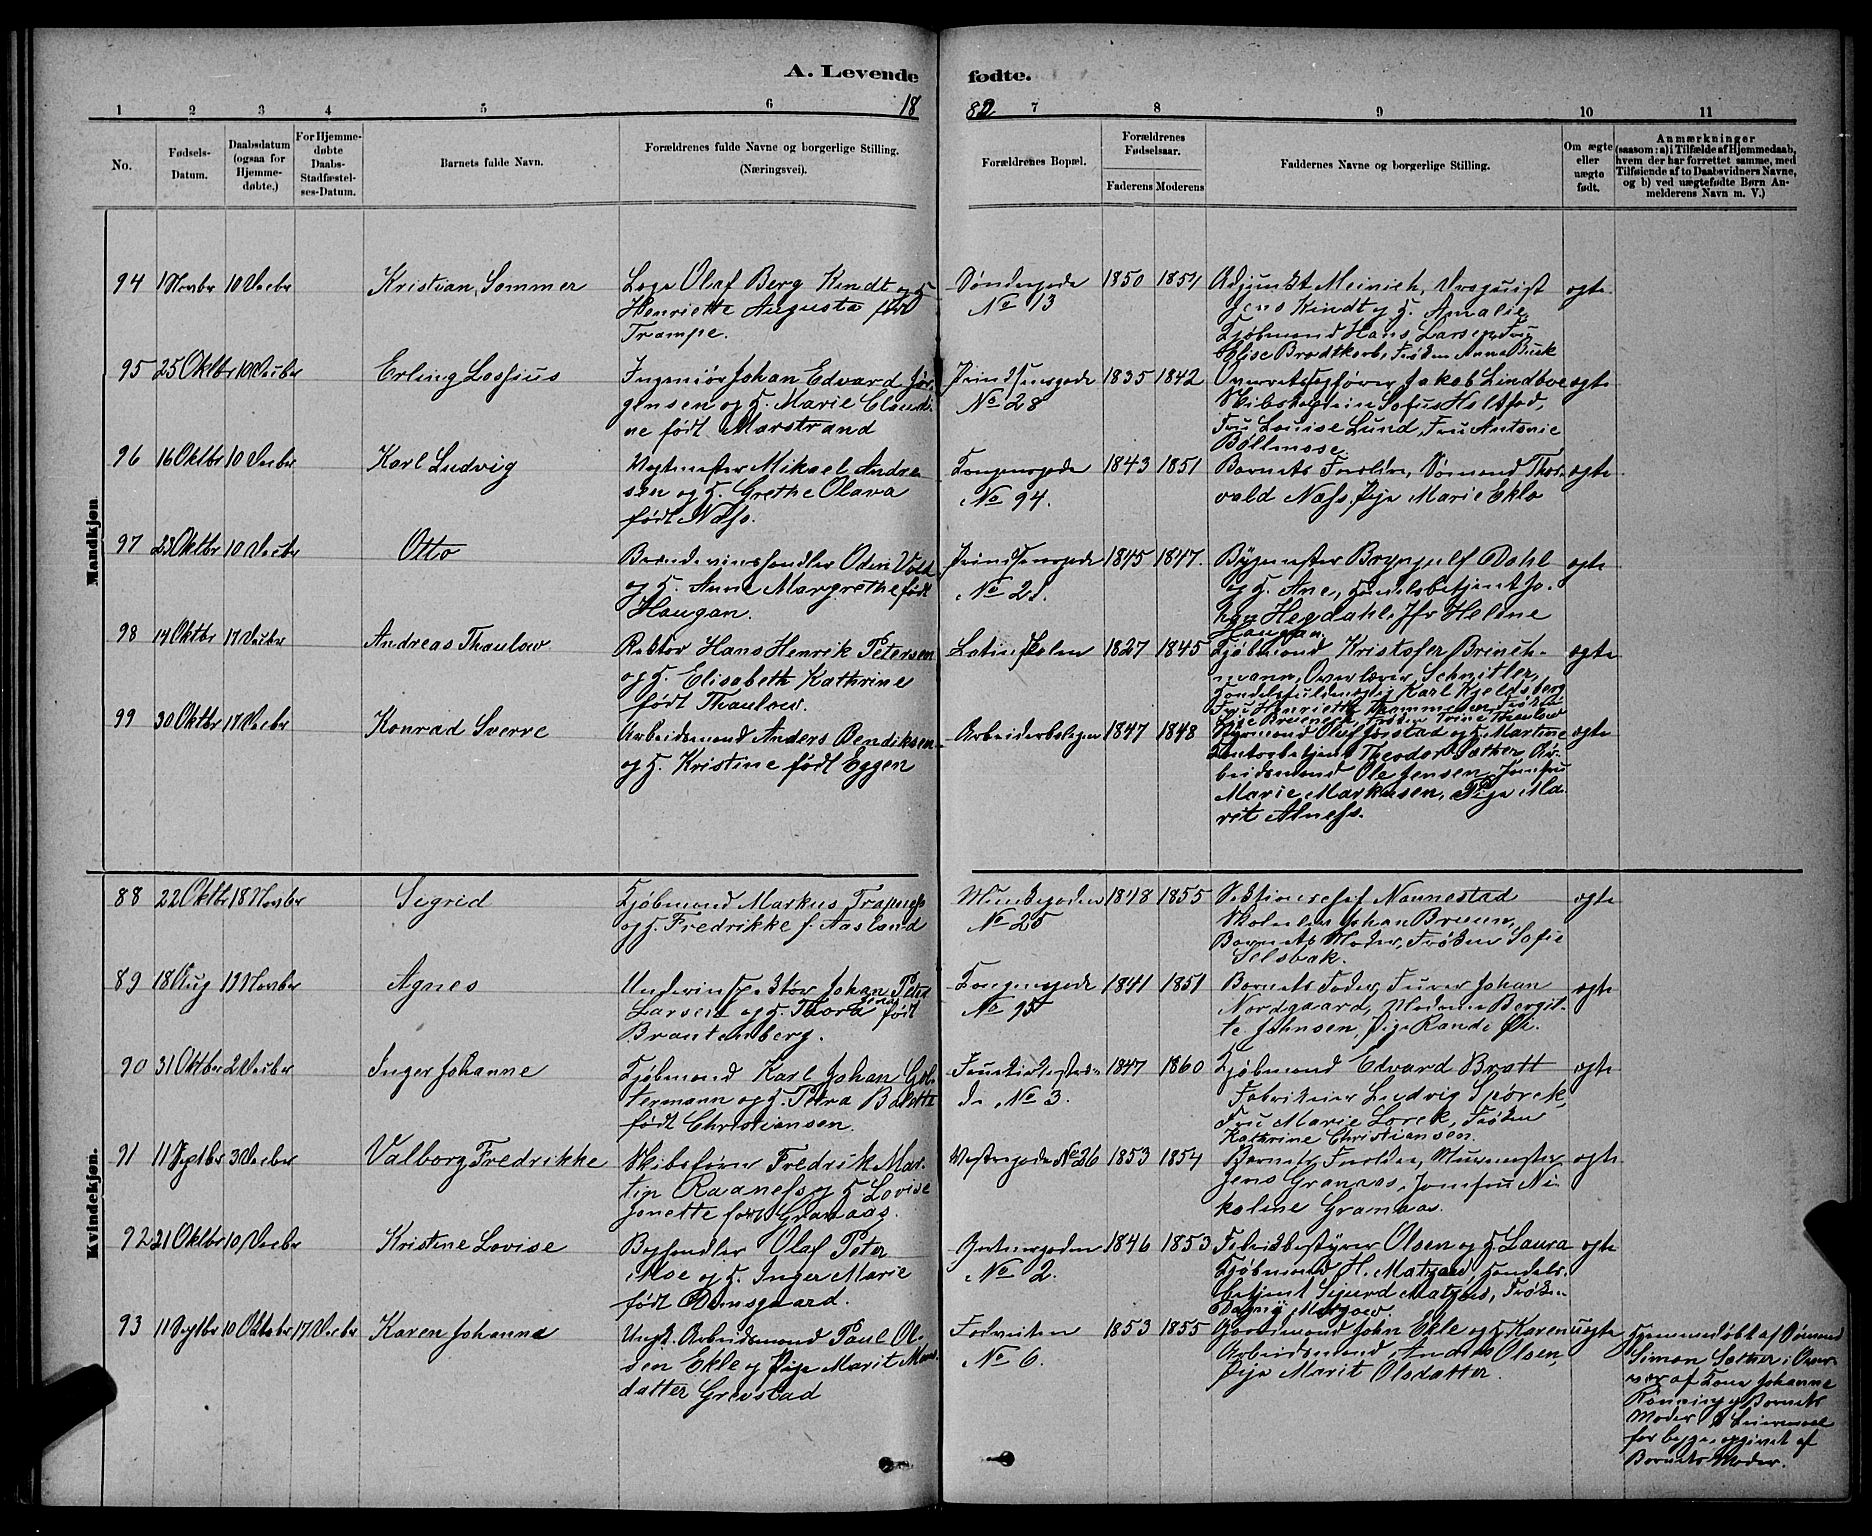 A. Levende fødte.
1882
1 2 3 4 5 6 7 8 9 10 11
No.
Fødsels-
Datum.
Daabsdatum
(ogsaa for
Hjemme-
døbte.)
For Hjemme-
døbte
Daabs-
Stadfæstel-
ses-Datum.
Barnets fulde Navn.
Forældrenes fulde Navne og borgerlige Stilling.
(Næringsvei.)
Forældrenes Bopæl.
Forældrenes
Fødselsaar.
Faderens Moderens
Faddernes Navne og borgerlige Stilling.
Om ægte
eller
uægte
født.
Anmærkninger
(saasom: a) i Tilfælde af Hjemmedaab,
hvem der har forrettet samme, med
Tilføiende af to Daabsvidners Navne,
og b) ved uægtefødte Børn An-
melderens Navn m. V.)
Mandkjøn
94 1 Novbr 10 Decbr
Kristian Sommer
Olaf Berg Kindt og H.
Henriette Augusta født
Trampe.
Søndregade
No 13
1850 1851
Adjunkt Meinich,
Jens Kindt og H. Amalie,
Kjøbmand Hans Larsen, Fru
Elise Brodtkorb, Frøken Anna
ægte
95 25 Oktbr 10 Decbr
Erling Lossius
Ingeniør Johan Edvard Jør-
gensen og H. Marie Claudi-
ne født Marstrand
Prindsensgade
No 28
1835 1842
Overretssagfører Jakob Lindboe
Skibskaptein Sofus Holtfod,
Fru Louise Lund, Fru Antonie
Bøllmose
ægte
96 16 Oktbr 10 Decbr
Karl Ludvig
Vogtmester Mikael Andre-
sen og H. Grethe Olava
født Næss.
Kongensgade
No 94.
1843 1851
Barnets Forældre, Sømand Thor-
vald Næss, Pige Marie Eklo
ægte
97 23 Oktbr 10 Decbr
Otto
Brændevinshandler Oden Vold
og H. Anne Margrethe født
Haugan.
Prindsensgade
No 21.
1845 1847.
Bygmester Brynjulf Dahl
og H. Ane, Handelsbetjent Jo-
han Hegdahl, Jfr Heline
Haugan.
ægte
98 14 Oktbr 17 Decbr
Andreas Thaulow
Rektor Hans Henrik Petersen
og H. Elisabeth Kathrine
født Thaulow.
Latinskolen
1827 1845
Kjøbmand Kristofer Brinch-
mann, Overlærer Schnitler,
Handelsfuldmægtig Karl Kjeldsberg
Fru Henriette
Frøken Trine Thaulow
ægte
99 30 Oktbr 17 Decbr
Konrad Sverre
Arbeidsmand Anders Bendiksen
og H. Kristine født Eggen
Arbeiderboliger
1847 1848
Styrmand Oluf Jørstad og H. Martine
Kontorbetjent Theodor Sæther, Ar-
beidsmand Ole Jensen, Jomfru
Marie Markusen, Pige Ma-
rit Alness.
ægte
Kvindekjøn.
88 22 Oktbr 18 Novbr
Sigrid
Kjøbmand Markus Trapness
og H. Fredrikke f. Aasland
Munkegaden
No 25
1848 1855
Sektionschef Nannestad
Skolelær Johan Bruun,
Barnets Moder, Frøken Sofie
Selsbak.
ægte
89 18 Aug 19 Novbr
Agnes
Underinspektør Johan Peter
Larsen og H. Thora født
Brantenberg.
Kongensgade
No 95
1841 1851
Barnets Fader, Furer Johan
Nordgaard, Madame Bergit-
te Johnsen, Pige Randi Øi.
ægte
90 31 Oktbr 2 Decbr
Inger Johanne
Kjøbmand Karl Johan Gel-
termann og H. Petra Bolette
født Christiansen.
Fruekirkestræ-
de No 3.
1847 1860
Kjøbmand Edvard Bratt
Fabrikeier Ludvig Spørck,
Fru Marie Lorck, Frøken
Kathrine Christiansen.
ægte
91 11 Septbr 3 Decbr
Valborg Fredrikke
Skibsfører Fredrik Mar-
tin Raaness og H. Lovise
Jonette født Granaas.
Vestregade No 26
1853 1854
Barnets Forældre, Murmester
Jens Granaas, Jomfru Ni-
koline Granaas.
ægte
92 21 Oktbr 10 Decbr
Kristine Lovise
Boghandler Olaf Peter
Moe og H. Inger Marie
født Damsgaard.
Gartnergaden
No 2.
1846 1853
Fabrikbestyrer Olsen og H. Laura
Kjøbmand H. Matzow, Handels-
betjent Sigurd Matzow, Frøken
Dagny Matzow.
ægte
93 11 Septbr 10 Oktober 17 Decbr
Karen Johanna
Ungk. Arbeidsmand Paul Ol-
sen Ekle og Pige Marit
datter Grevstad
Fodveiten
No 6.
1853 1855
Gaardmand John Ekle og H. Karen
Arbeidsmand Anders Olsen,
Pige Marit Olsdatter.
uægte
Hjemmedøbt af Sømand
Simon Sæther i Over-
vær af Kone Johanne
Rønning og Barnets
Moder. Leiermaal
for begge opgivet af
Barnets Moder.